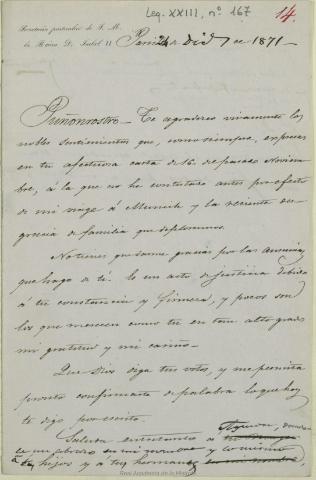 Leg. XXIII, nº 167
14.
Secretaría particular de S. M.
la Reina Dª Isabel II
Paris 24 de Dic de 1871
Puñonrostro— Te agradezco vivamente los
nobles sentimientos que, como siempre, expresas
en tu afectuosa carta de 16 de pasado Noviem
bre, á la que no he contestado antes por efecto
de mi viage á Munich y la reciente des-
gracia de familia que deploramos.
No tienes que darme gracias por las ausencias
que hago de tí. Es un acto de justicia debido
á tu constancia y firmeza, y pocos son
los que merecen como tu en tan alto grado
mi gratitud y mi cariño.
Que Dios oiga tus votos, y me permita
pronto confirmarte de palabra lo que hoy
te digo por escrito.
Saluda entretanto á tu
un abrazo en mi nombre y
tus hijos y á tus hermanas en mi nombre,
Real Academia de la Historia